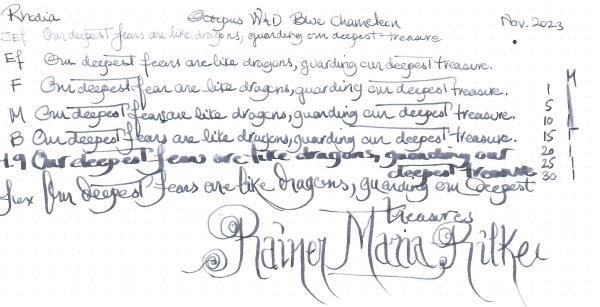 Rhodia Octopus W&D Blue Chameleon Nov. 2023
EEf Our deepest fears are like dragons, guarding our deepest treasure
Ef Our deepest feers are like dragons, guarding our deepest treasure.
F Our deepest fear are like dragons, guarding our deepest treasure.
M Our deepest fears are like dragons, guarding our deepest treasure.
B Our deepest fears are like dragons, guarding our deepest treasure.
1.9 Our deepest fears are like dragons, guarding our
deepest treasure
flex Our deepest fears are like dragons, guarding our deepest
treasures
Rainer Maria Rilke
M
1
5
10
15
20
25
30